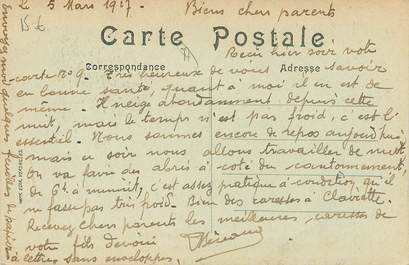 le 5 Mars 1917.
Biens chers parents
Carte Postale
Correspondance
Adresse
Reçu hier soir votre
carte no 9. Très heureux de vous savoir
en bonne santé, quant à moi il en est de
même. Il neige abondamment depuis cette
nuit, mais le temps n'est pas froid, c'est l'
essentiel. Nous sommes encore de repos aujourd'hui
mais ce soir nous allons travailler de nuit
on va faire des abris à coté du cantonnement,
de 6h à minuit, c'est assez pratique à condition qu'il
ne fasse pas très froid. Bien des caresses à
Recevez chers parents les meilleures caresses de
votre fils dévoué
Envoyez moi quelques feuilles de papier
à lettres sans enveloppes.